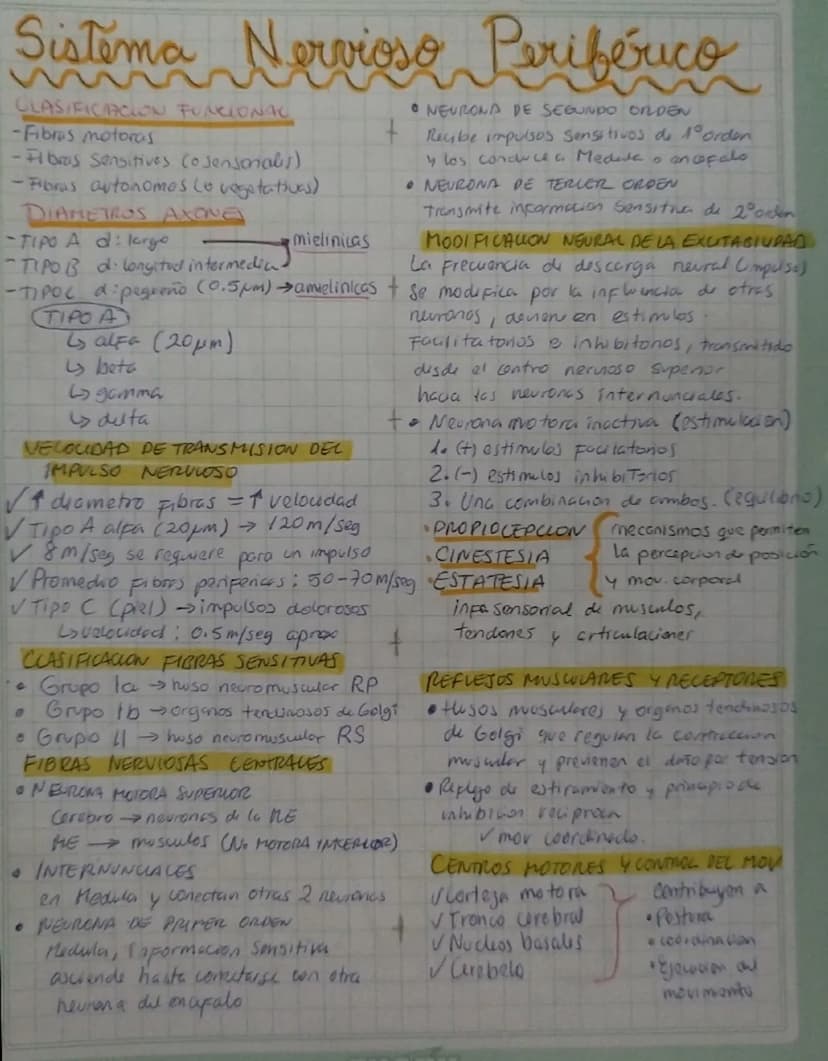 Sistema Nervioso Periférico
CLASIFICACION FUNCIONAL
- Fibras motoras
- Fibras Sensitivas (o sensoriales)
- Fibras autonomas (o vegetativas)
DIAMETROS AXONES
- TIPO A d: largo → mielinicas
- TIPO B d: longitud intermedia
- TIPO C d: pequeño (0.5 μm) → amielinicas
TIPO A
↳ alfa (20 μm)
↳ beta
↳ gamma
↳ delta
VELOCIDAD DE TRANSMISION DEL
IMPULSO NERVIOSO
✓ ↑ diametro fibras = ↑ velocidad
✓ Tipo A alfa (20 μm) → 120 m/seg
✓ 8 m/seg se requiere para un impulso
✓ Promedio fibras perifericas: 50-70 m/seg
✓ Tipo C (piel) → impulsos dolorosos
↳ velocidad: 0.5 m/seg aprox
CLASIFICACION FIBRAS SENSITIVAS
• Grupo Ia → huso neuromuscular RP
• Grupo Ib → organos tendinosos de Golgi
• Grupo II → huso neuromuscular RS
FIBRAS NERVIOSAS CENTRALES
• NEURONA MOTORA SUPERIOR
Cerebro → neuronas de la ME
ME → musculos (No MOTORA INFERIOR)
• INTERNUNCIALES
en Medula y conectan otras 2 neuronas
• NEURONA DE PRIMER ORDEN
Medula, Informacion Sensitiva
asciende hasta conectarse con otra
neurona del encefalo
• NEURONA DE SEGUNDO ORDEN
Recibe impulsos sensitivos de 1° orden
y los conduce a Medula o encefalo
• NEURONA DE TERCER ORDEN
Transmite informacion Sensitiva de 2° orden
MODIFICACION NEURAL DE LA EXCITABILIDAD
La frecuencia de descarga neural (impulsos)
se modifica por la influencia de otras
neuronas, devienen en estimulos
Facilitatorios e inhibitorios, transmitido
desde el centro nervioso superior
hacia las neuronas internunciales.
• Neurona motora inactiva (estimulacion)
1. (+) estimulos facilitatorios
2. (-) estimulos inhibitorios
3. Una combinacion de ambos. (equilibrio)
• PROPIOCEPCION
• CINESTESIA
• ESTATESIA
mecanismos que permiten
la percepcion de posición
y mov. corporal
info sensorial de musculos,
tendones y articulaciones
REFLEJOS MUSCULARES Y RECEPTORES
• Husos musculares y organos tendinosos
de Golgi que regulan la contraccion
muscular y previenen el daño por tension
• Reflejo de estiramiento y principio de
inhibicion reciproca
✓ mov coordinado.
CENTROS MOTORES Y CONTROL DEL MOV
✓ Corteza motora
✓ Tronco cerebral
✓ Nucleos basales
✓ Cerebelo
Contribuyen a
• Postura
• coordinacion
• Ejecucion del
movimiento